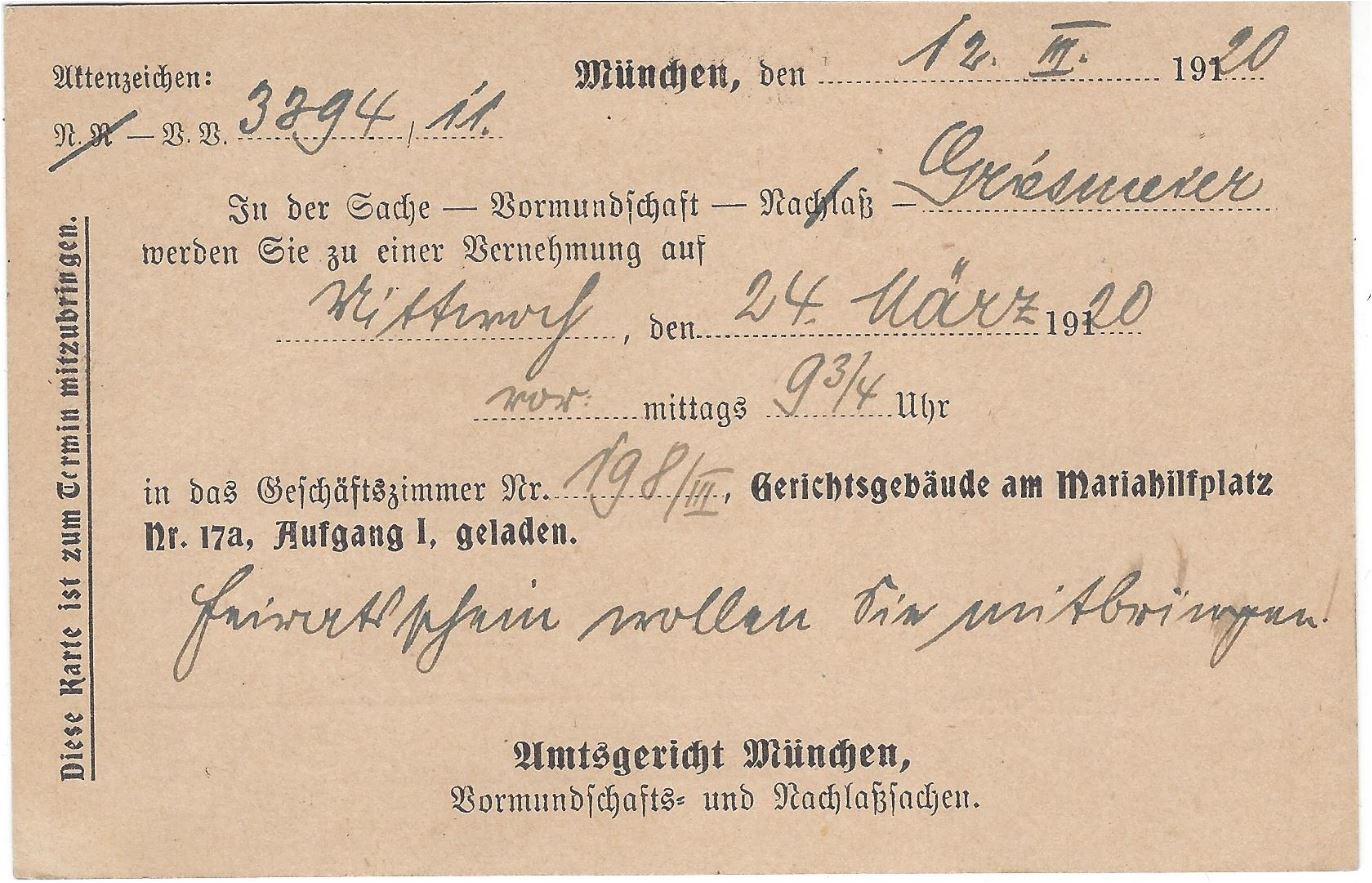 Aktenzeichen:
München, den 12. III. 1920
N. R – V. V. 3894/11.
In der Sache — Vormundschaft — Nachlaß — Griesmeier
werden Sie zu einer Vernehmung auf
Mittwoch, den 24. März 1920
vor mittags 9 3/4 Uhr
in das Geschäftszimmer Nr. 198/III, Gerichtsgebäude am Mariahilfplatz
Nr. 17a, Aufgang I, geladen.
Heiratsschein wollen Sie mitbringen!
Amtsgericht München,
Vormundschafts- und Nachlaßsachen.
Diese Karte ist zum Termin mitzubringen.